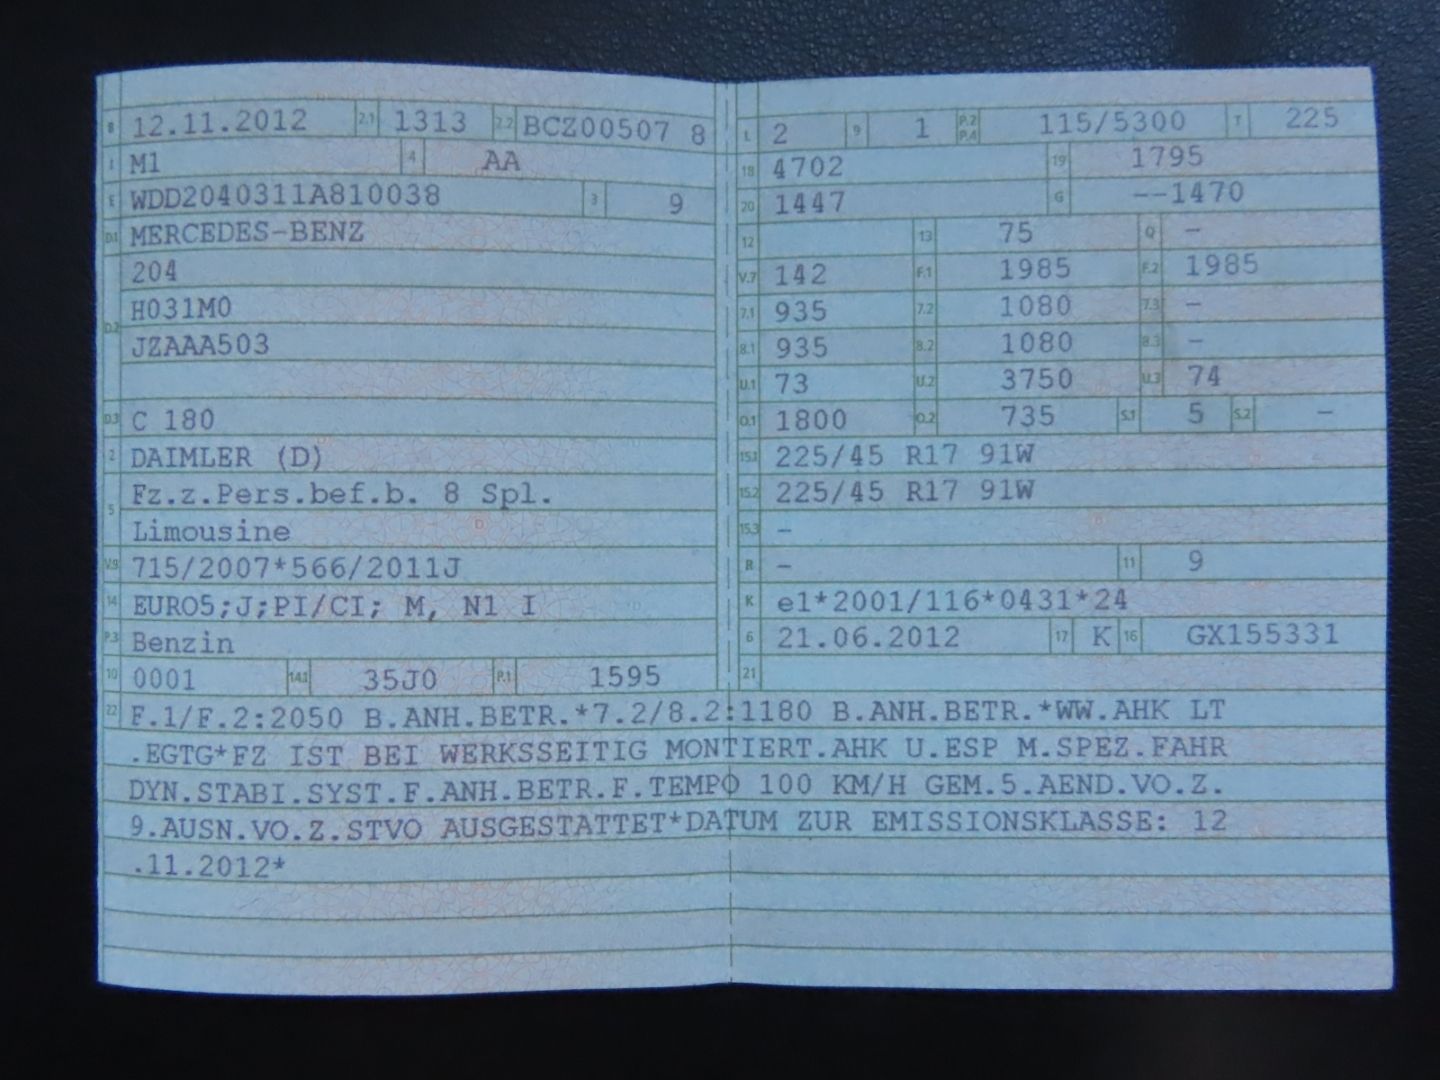 B 12.11.2012 2.1 1313 2.2 BCZ00507 8
J M1 4 AA
E WDD2040311A810038 3 9
D.1 MERCEDES-BENZ
204
D.2 H031M0
JZAAA503
D.3 C 180
2 DAIMLER (D)
5 Fz.z.Pers.bef.b. 8 Spl.
Limousine
V.9 715/2007*566/2011J
14 EURO5;J;PI/CI; M, N1 I
P.3 Benzin
10 0001 14.1 35J0 P.1 1595
L 2 9 1 P.2 P.4 115/5300 T 225
18 4702 19 1795
20 1447 G --1470
12 13 75 Q -
V.7 142 F.1 1985 F.2 1985
7.1 935 7.2 1080 7.3 -
8.1 935 8.2 1080 8.3 -
U.1 73 U.2 3750 U.3 74
O.1 1800 O.2 735 S.1 5 S.2 -
15.1 225/45 R17 91W
15.2 225/45 R17 91W
15.3 -
R - 11 9
K e1*2001/116*0431*24
6 21.06.2012 17 K 16 GX155331
21
22 F.1/F.2:2050 B.ANH.BETR.*7.2/8.2:1180 B.ANH.BETR.*WW.AHK LT
.EGTG*FZ IST BEI WERKSSEITIG MONTIERT.AHK U.ESP M.SPEZ.FAHR
DYN.STABI.SYST.F.ANH.BETR.F.TEMPO 100 KM/H GEM.5.AEND.VO.Z.
9.AUSN.VO.Z.STVO AUSGESTATTET*DATUM ZUR EMISSIONSKLASSE: 12
.11.2012*